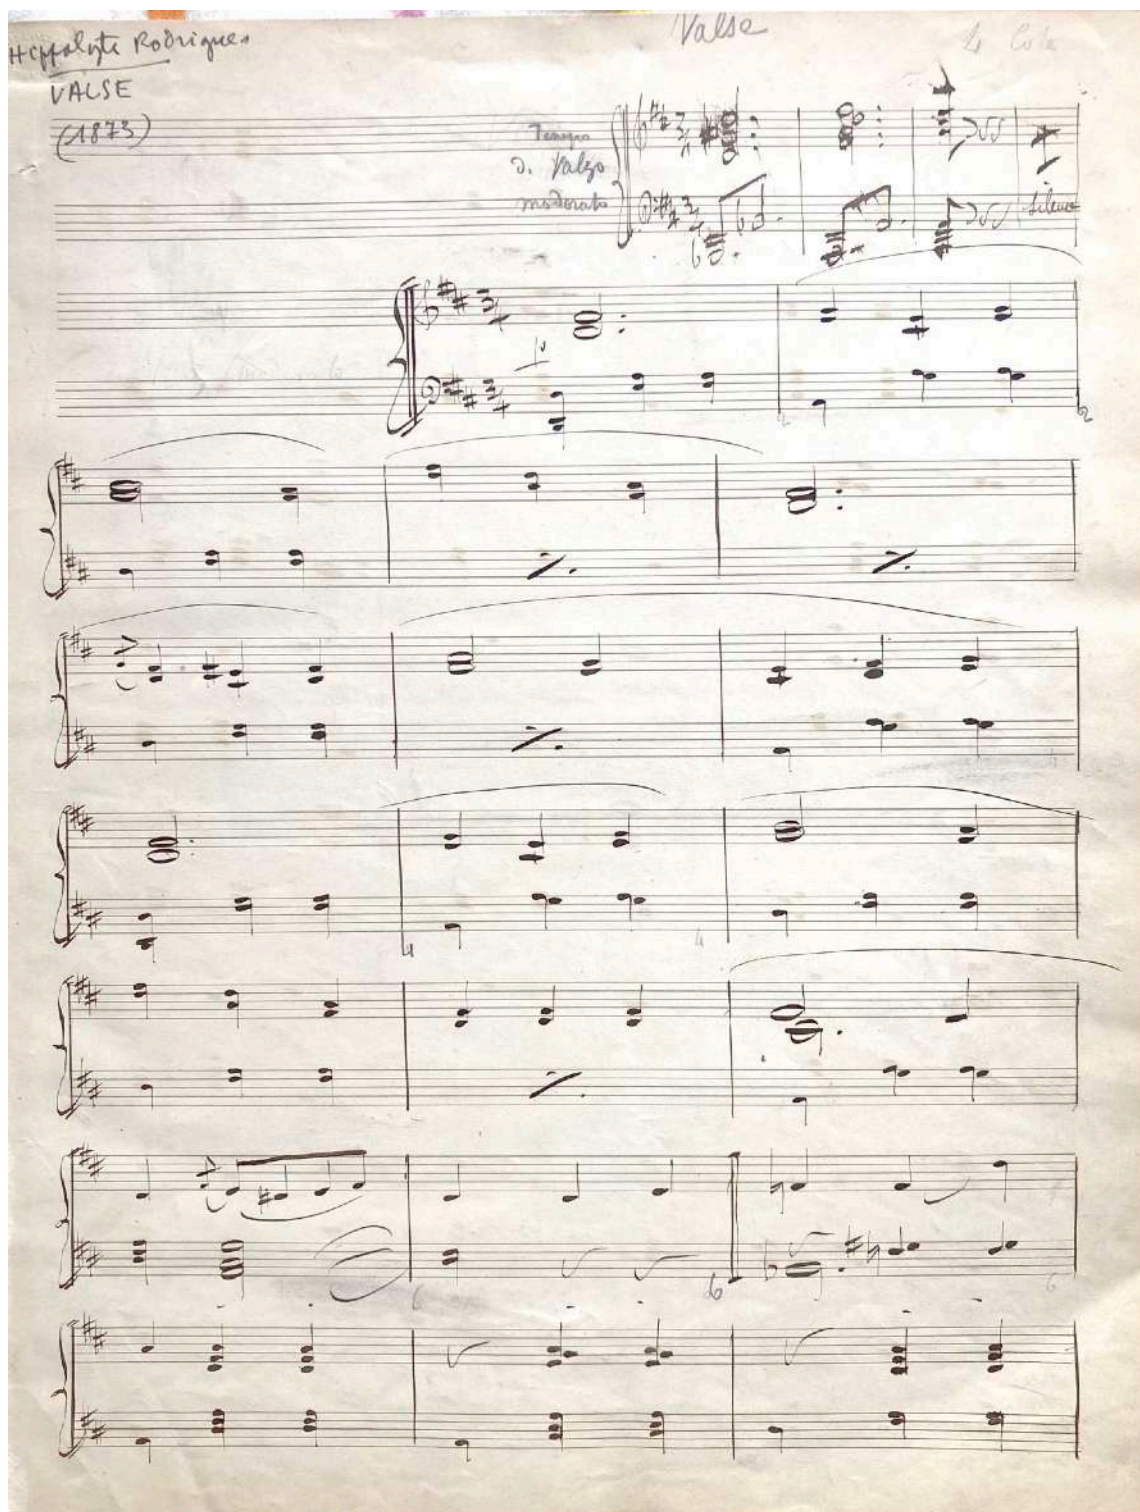 Hippolyte Rodrigues
VALSE
(1873)
Valse
Tempo
di Valzo
moderato
silence